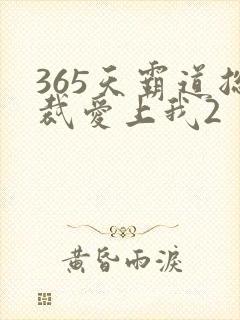 365天霸道总
裁爱上我2
黄昏雨淚